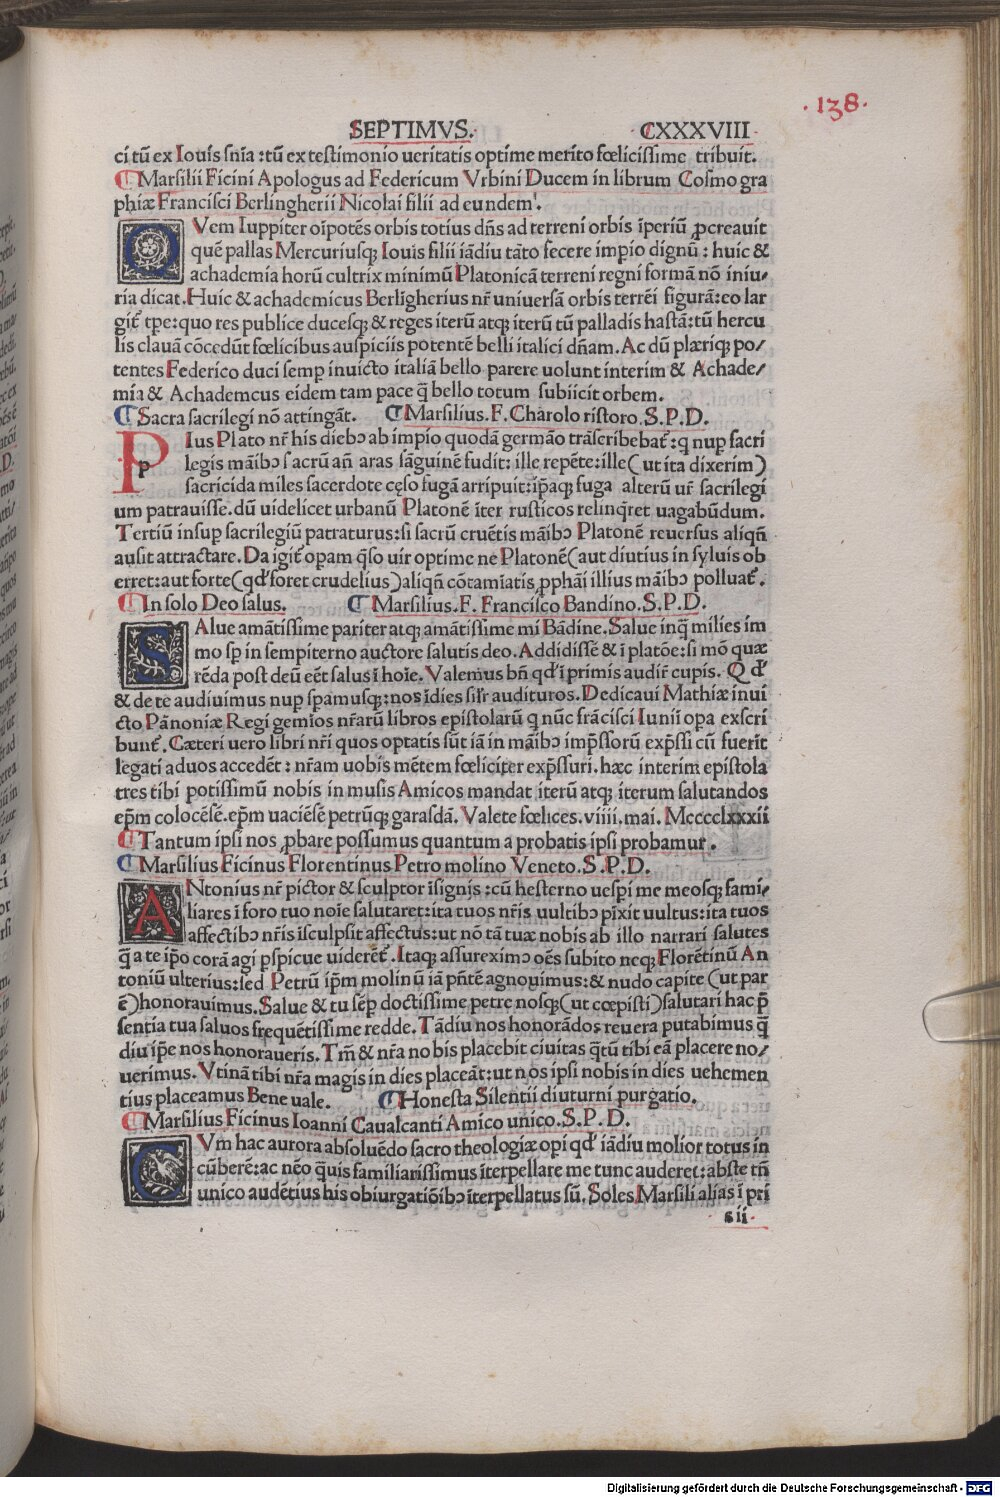 · 138 ·
SEPTIMVS. CXXXVIII
ci tū ex Iouis snīa : tū ex testimonio ueritatis optime merito fœlicissime tribuit.
Marsilii Ficini Apologus ad Federicum Vrbini Ducem in librum Cosmo gra
phiæ Francisci Berlingherii Nicolai filii ad eundem.
QVem Iuppiter oīpotēs orbis totius dn̄s ad terreni orbis īperiū ꝓcreauit
quē pallas Mercuriusqꝫ Iouis filii iādiu tāto fecere impio dignū : huic &
achademia horū cultrix minimū Platonicā terreni regni formā nō iniu-
ria dicat. Huic & achademicus Berlīgherius nr̄ uniuersā orbis terrēi figurā: eo lar
git̄ tp̄e: quo res publice ducesqꝫ & reges iterū atqꝫ iterū tū palladis hastā: tū hercu
lis clauā cōcedūt fœlicibus auspiciis potentē belli italici dn̄am. Ac dū plæriqꝫ po/
tentes Federico duci semp inuicto italiā bello parere uolunt interim & Achade/
mia & Achademcus eidem tam pace q̄ bello totum subiicit orbem.
Sacra sacrilegi nō attingāt. Marsilius. F. Charolo ristoro. S. P. D.
PIus Plato nr̄ his dieb⁹ ab impio quodā germāo trāscribebat̄: q nup sacri
p
legis māib⁹ sacrū an̄ aras sāguinē fudit: ille repēte: ille (ut ita dixerim)
sacricida miles sacerdote cęso fugā arripuit: ip̄aqꝫ fuga alterū ur̄ sacrilegi
um patrauisse. dū uidelicet urbanū Platonē īter rusticos relinq̄ret uagabūdum.
Tertiū insup sacrilegiū patraturus: si sacrū cruētis māib⁹ Platonē reuersus aliqn̄
ausit attractare. Da igit̄ opam q̄so uir optime ne Platonē (aut diutius in syluis ob
erret: aut forte (qđ foret crudelius) aliqn̄ cōtamiatis ꝓphāi illius māib⁹ polluat̄.
In solo Deo salus. Marsilius. F. Francisco Bandino. S. P. D.
SAlue amātissime pariter atqꝫ amātissime mi Bādine. Salue inq̄ milies im
mo sp̄ in sempiterno auctore salutis deo. Addidissē & ī platōe: si mō quæ
rēda post deū eēt salus ī hoīe. Valemus bn̄ qđ ī primis audir̄ cupis. Qđ
& de te audiuimus nup spamusqꝫ: nos īdies sil̄r audituros. Dedicaui Mathiæ inui
cto Pānoniæ Regi gemīos nr̄arū libros epistolarū q nūc frācisci Iunii opa exscri
bunt̄. Cæteri uero libri nr̄i quos optatis sūt iā in māib⁹ imp̄ssorū exp̄ssi cū fuerīt
legati aduos accedēt : nr̄am uobis mētem fœliciter exp̄ssuri. hæc interim epistola
tres tibi potissimū nobis in musis Amicos mandat iterū atqꝫ iterum salutandos
ep̄m colocēsē. ep̄m uaciēsē petrūqꝫ garasdā. Valete fœlices. viiii. mai. Mcccclxxxii
Tantum ipsi nos ꝓbare possumus quantum a probatis ipsi probamur.
Marsilius Ficinus Florentinus Petro molino Veneto. S. P. D.
ANtonius nr̄ pictor & sculptor īsignis : cū hesterno uesp̄i me meosqꝫ fami-
liares ī foro tuo noīe salutaret: ita tuos nr̄is uultib⁹ pīxit uultus: ita tuos
affectib⁹ nr̄is īsculpsit affectus: ut nō tā tuæ nobis ab illo narrari salutes
q̄ a te ip̄o corā agi pspicue uiderēt̄. Itaqꝫ assurexim⁹ oēs subito neqꝫ Florētinū An
toniū ulterius: sed Petrū ip̄m molinū iā pn̄tē agnouimus: & nudo capite (ut par
ē) honorauimus. Salue & tu sēp doctissime petre nosqꝫ (ut cœpisti) salutari hac p̄
sentia tua saluos frequētissime redde. Tādiu nos honorādos reuera putabimus q̄
diu ip̄e nos honoraueris. Tm̄ & nr̄a nobis placebit ciuitas q̄tū tibi eā placere no/
uerimus. Vtinā tibi nr̄a magis in dies placeāt: ut nos ipsi nobis in dies uehemen
tius placeamus Bene uale. Honesta Silentii diuturni purgatio.
Marsilius Ficinus Ioanni Caualcanti Amico unico. S. P. D.
CVm hac aurora absoluēdo sacro theologiæ opi qđ iādiu molior totus in
cūberē: ac nēo q̄uis familiarissimus īterpellare me tunc auderet: abste tn̄
unico audētius his obiurgatiōib⁹ īterpellatus sū. Soles Marsili alias ī pri
s ii
Digitalisierung gefördert durch die Deutsche Forschungsgemeinschaft - DFG